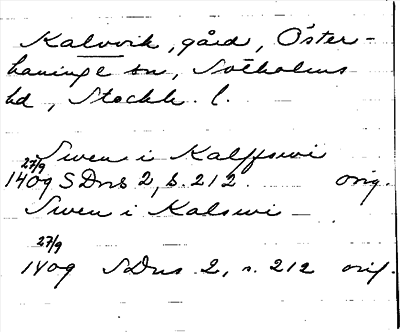 Kalvvik, gård, Öster-
haninge sn, Sotholms
hd, Stockh. l.
Swen i Kalffswi
27/9
1409 SDns 2, s. 212 orig.
Swen i Kalswi -
27/9
1409 SDns 2, s. 212 orig.